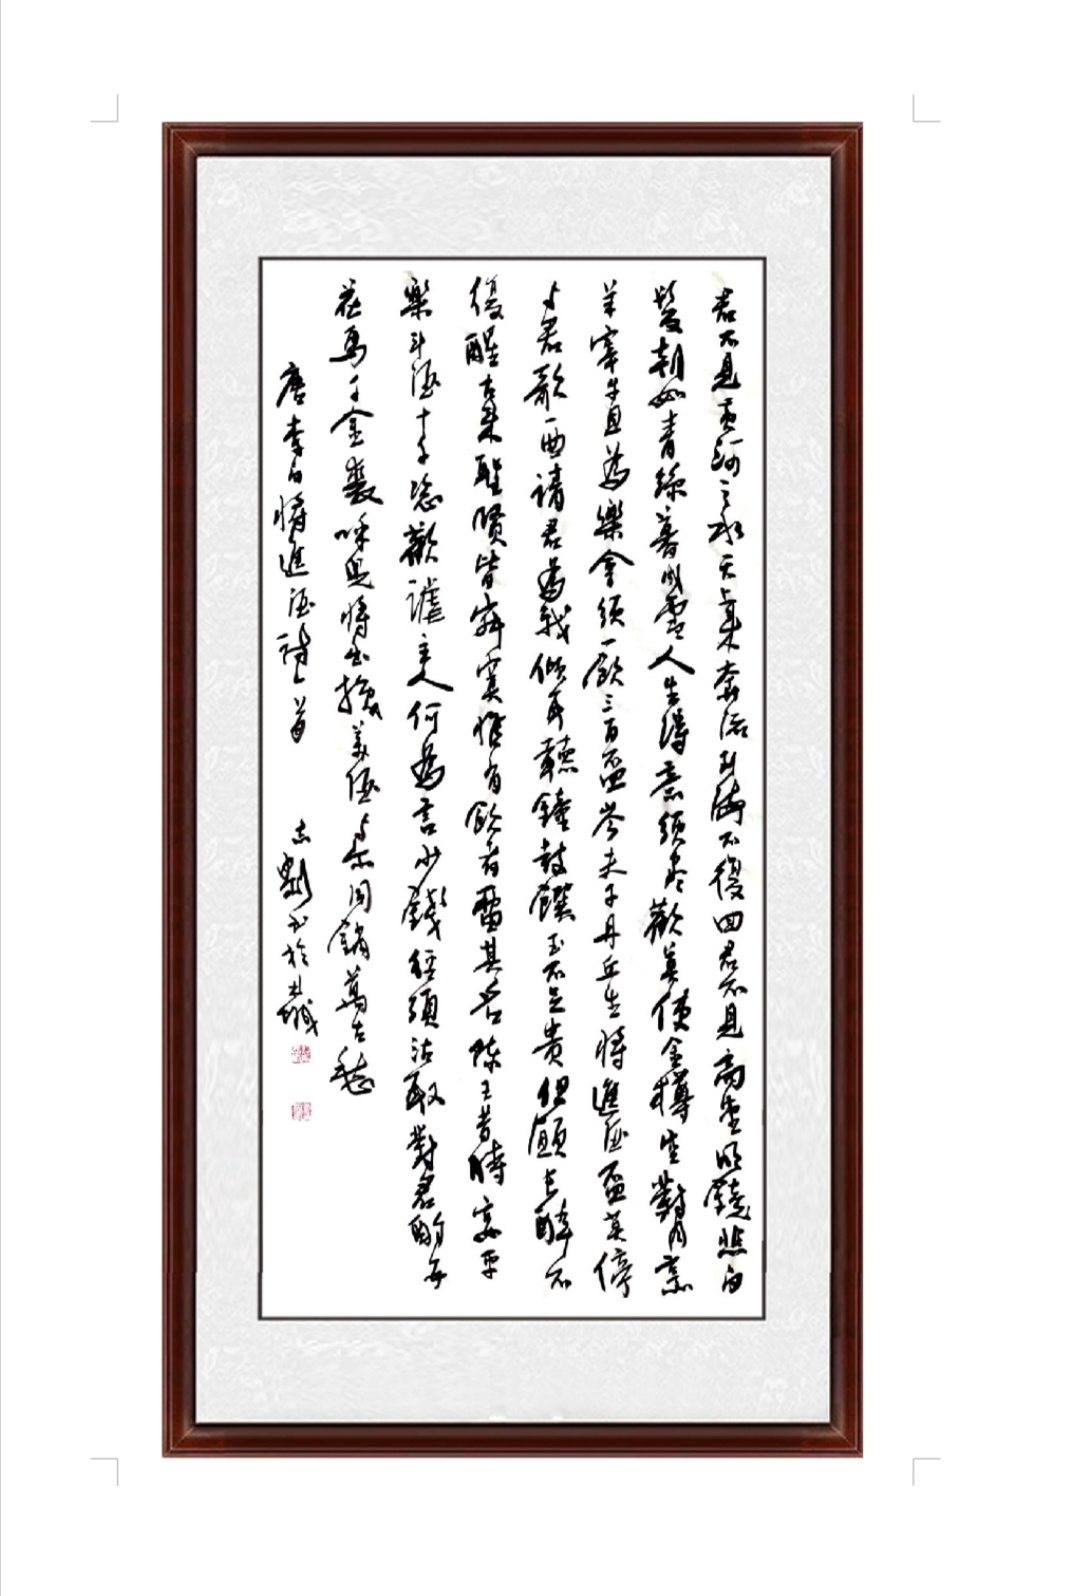 君不見黃河之水天上來奔流到海不復回君不見高堂明鏡悲白
髮朝如青絲暮成雪人生得意須盡歡莫使金樽空對月烹
羊宰牛且為樂會須一飲三百盃岑夫子丹丘生將進酒盃莫停
與君歌一曲請君為我傾耳聽鐘鼓饌玉不足貴但願長醉不
復醒古來聖賢皆寂寞惟有飲者留其名陳王昔時宴平
樂斗酒十千恣歡謔主人何為言少錢徑須沽取對君酌五
花馬千金裘呼兒將出換美酒與爾同銷萬古愁
唐李白將進酒詩一首 志剛書於城